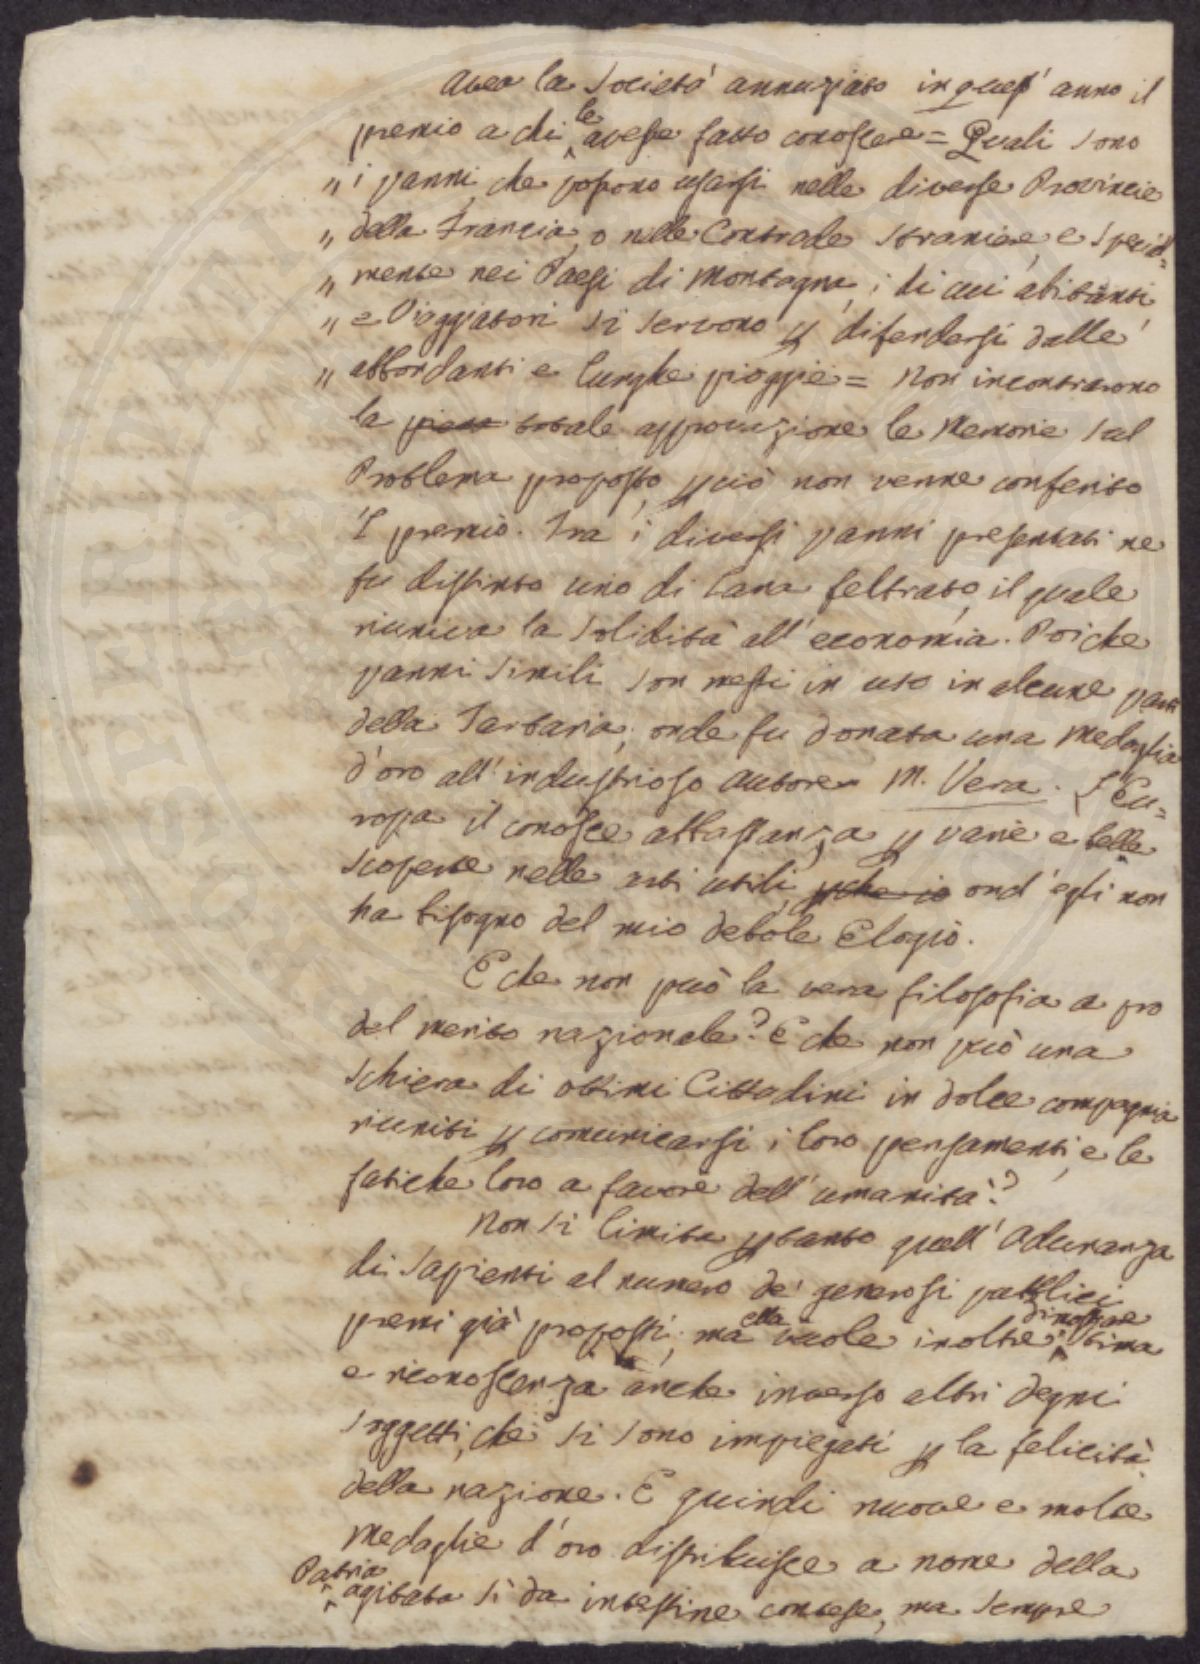 Avea la Società annunziato in quest' anno il
premio a chi le avesse fatto conoscere = Quali sono
„ i panni, che possono usarsi nelle diverse Provincie
„ della Francia, o nelle Contrade straniere, e special=
„ mente nei Paesi di Montagna, i di cui abitanti,
„ e Viaggiatori si servono p difendersi dalle
„ abbondanti e lunghe pioggie = Non incontrarono
la totale approvazione le Memorie sul
Problema proposto, pciò non venne conferito
'l premio. Tra i diversi panni presentati ne
fu distinto uno di lana feltrato, il quale
riuniva la solidità all' economia. Poiche
panni simili son messi in uso in alcune parti
della Tartaria; onde fu donata una Medaglia
d'oro all' industrioso Autore M. Vera. L'Eu=
ropa il conosce abbastanza p varie e belle
scoperte nelle arti utili, pche io ond' egli non
ha bisogno del mio debole Elogio.
E che non può la vera filosofia a pro
del merito nazionale? E che non può una
schiera di ottimi Cittadini in dolce compagnia
riuniti p comunicarsi i loro pensamenti, e le
fatiche loro a favore dell' umanità?
Non si limita ptanto quell' Adunanza
di Sapienti al numero de' generosi pubblici
premi già proposti; ma ella vuole inoltre dimostrare stima
e riconoscenza anche inverso altri degni
soggetti, che si sono impiegati p la felicità
della nazione. E quindi nuove e molte
Medaglie d'oro distribuisce a nome della
Patria agitata sì da intestine contese, ma sempre